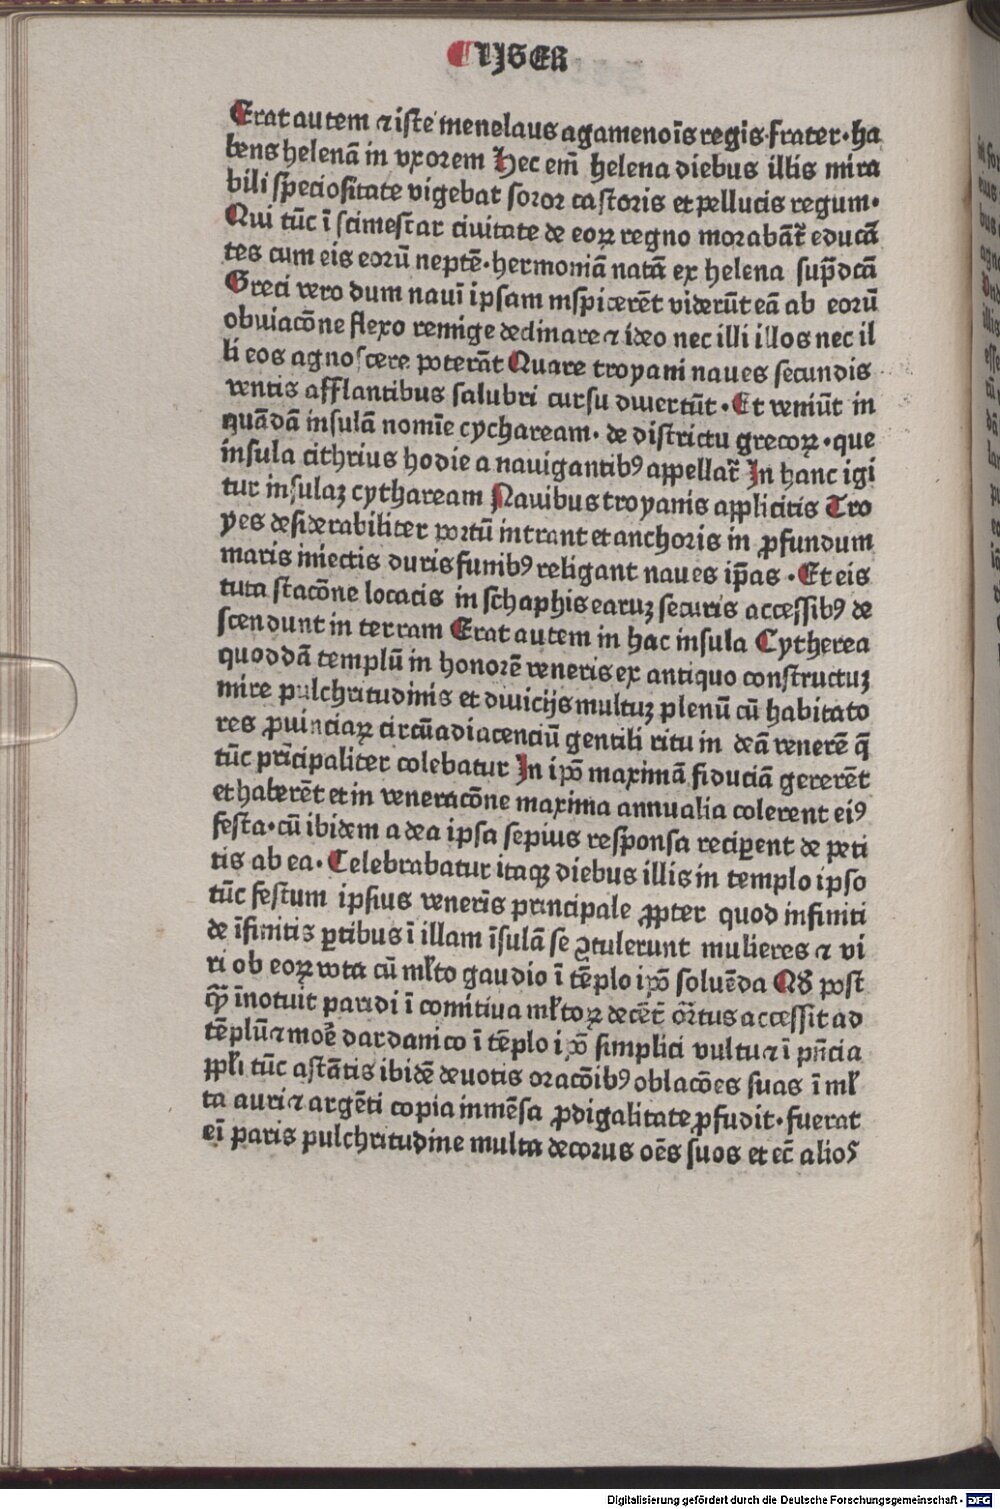 ¶LIBER
Erat autem ⁊ iste menelaus agamenoīs regis·frater·ha
bens helenā in vxorem Hec em̄ helena diebus illis mira
bili speciositate vigebat soror castoris et pellucis regum·
Qui tūc ī scimestar ciuitate de eoꝝ regno morabāt̄ educā
tes cum eis eorū neptē·hermoniā natā ex helena sup̄dcā
Greci vero dum nauī ipsam inspicerēt viderūt eā ab eorū
obuiacōne flexo remige declinare ⁊ ideo nec illi illos nec il
li eos agnoscere poterāt Quare troyani naues secundis
ventis afflantibus salubri cursu diuertūt·Et veniūt in
quādā insulā nomīe cychaream·de districtu grecoꝝ·que
insula cithrius hodie a nauigantibꝰ appellat̄ In hanc igi
tur insulaꝫ cythaream Nauibus troyanis applicitis Tro
yes desiderabiliter portū intrant et anchoris in ꝓfundum
maris iniectis duris funibꝰ religant naues ip̄as·Et eis
tuta stacōne locatis in schaphis earuꝫ securis accessibꝰ de
scendunt in terram Erat autem in hac insula Cytherea
quoddā templū in honorē veneris ex antiquo constructuꝫ
mire pulchritudinis et diuicijs multuꝫ plenū cū habitato
res ꝓuinciaꝝ circūadiacenciū gentili ritu in deā venerē q̄
tūc prīcipaliter colebatur In ip̄o maximā fiduciā gererēt
et haberēt et in veneracōne maxima annualia colerent eiꝰ
festa·cū ibidem a dea ipsa sepius responsa reciꝑent de peti
tis ab ea·Celebrabatur itaqꝫ diebus illis in templo ipso
tūc festum ipsius venerīs principale ꝓpter quod infiniti
de īfinitis ꝑtibus ī illam īsulā se ꝯtulerunt mulieres ⁊ vi
ri ob eoꝝ vota cū ml̄to gaudio ī tēplo ip̄o soluēda Qđ post
qͫ īnotuit paridi ī comitiua ml̄toꝝ decēt̄ or̄tus accessit ad
tēplū ⁊ moē dardanico ī tēplo ip̄o simplici vultu ⁊ ī pn̄cia
ppl̄i tūc astātis ibidē deuotis oracōibꝰ oblacōes suas ī ml̄
ta auri ⁊ argēti copia inmēsa ꝓdigalitate ꝓfudit·fuerat
eī paris pulchritudine multa decorus oēs suos et ec̄ alios
Digitalisierung gefördert durch die Deutsche Forschungsgemeinschaft - DFG